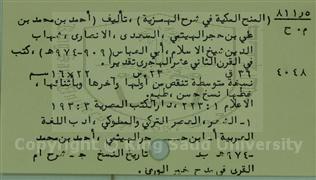 ٨١١ر٥
م ٠ ح
(المنح المكية في شرح الهمزية)، تأليف (أحمد بن محمد بن
علي بن حجر الهيتمي، السعدى، الانصارى، شهاب
الدين شيخ الاسلام، أبي العباس (٩٠٩-٩٧٤هـ)، كتب
في القرن الثاني عشر الهجرى تقديرا.
٤٠٤٨
٣٦ ق ٢٣ س ٢٢×١٦ سم
نسخة متوسطة تنقص من أولها وآخرها وباثنائها،
خطها نسخ حسن،
الاعلام ١: ٢٢٣، دار الكتب المصرية ٣: ١٩٣
١- الشعر، العصر التركي والمملوكي، أدب اللغة
العربية أ- ابن حجر الهيتمي، أحمد بن محمد
-٩٧٤هـ ب- تاريخ النسخ ج- شرح أم
القرى في مدح خير الورى.
King Saud University